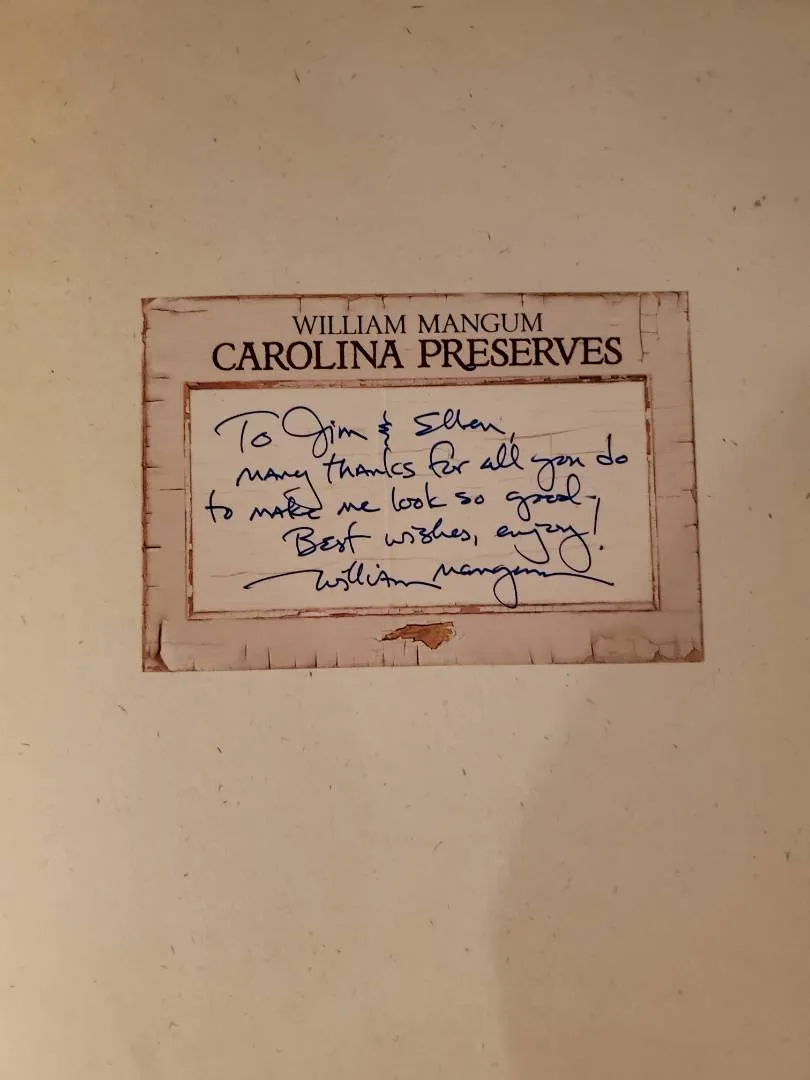 WILLIAM MANGUM
CAROLINA PRESERVES
To Jim & Ellen,
many thanks for all you do
to make me look so good-
Best wishes, enjoy!
William Mangum